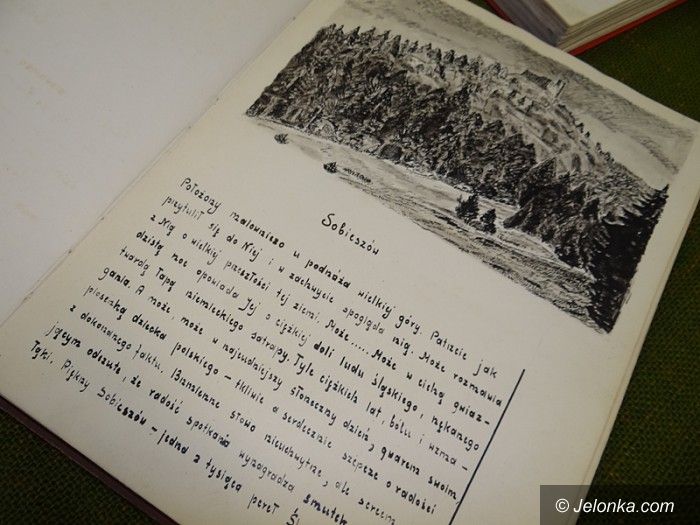 Sobieszów
Położony malowniczo u podnóża wielkiej góry. Patrzcie jak
przytulił się do Niej i w zachwycie spogląda nią. Może rozmawia
z Nią o wielkiej przeszłości tej ziemi. Może..... Może w cichą gwiaź-
dzistą noc opowiada Jej o ciężkiej doli ludu śląskiego, nękanego
twardą łapą niemieckiego satrapy. Tyle ciężkich lat, bólu i wzma-
gania. A może, może w najcudniejszy słoneczny dzień, gwarem swoim
piosenką dziecka polskiego - tkliwie a serdecznie szepcze o radości
z dokonanego faktu. Brzmienne słowo nieuchwytne, ale sercem
jącym odczute, że radość spotkania wynagradza smutek
Tęki. Piękny Sobieszów - jedna z tysiąca pereł
© Jelonka.com